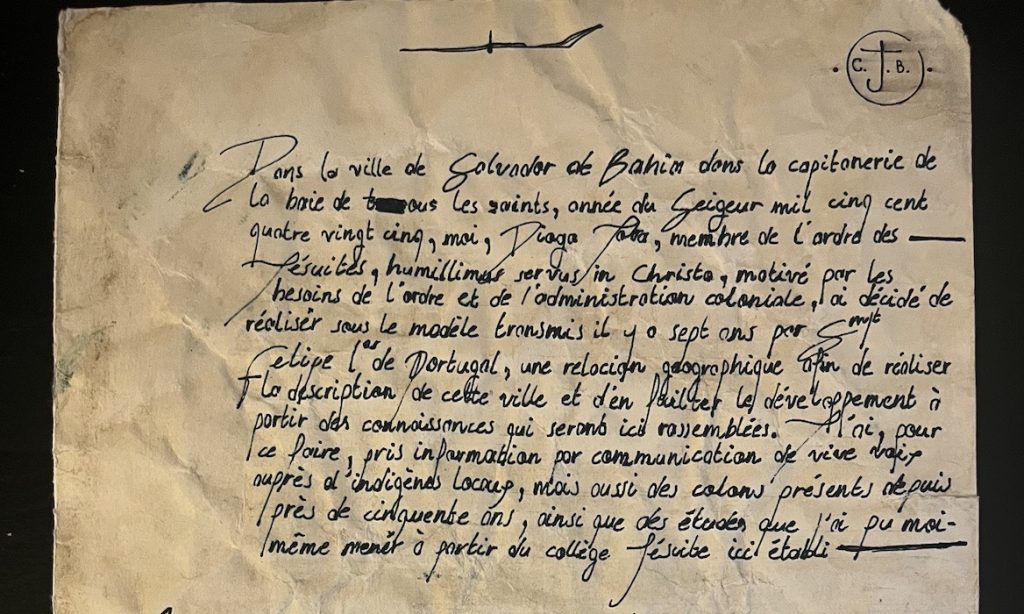 C. J. B.
Dans la ville de Salvador de Bahia dans la capitanerie de
la baie de tous les saints, année du Seigeur mil cinq cent
quatre vingt cinq, moi, Diago, membre de l'ordre des
Jésuites, humillimus servus in Christo, motivé par les
besoins de l'ordre et de l'administration coloniale, ai décidé de
réaliser sous le modèle transmis il y a sept ans par
Felipe 1er de Portugal, une relocion géographique afin de réaliser
la description de cette ville et d'en failiter le développement à
partir des connaissances qui seront ici rassemblées. J'ai, pour
ce faire, pris information por communication de vive voix
auprès d'indigènes locaux, mais aussi des colons présents depuis
près de cinquente ans, ainsi que des études que j'ai pu moi-
même mener à partir du collège Jésuite ici établi